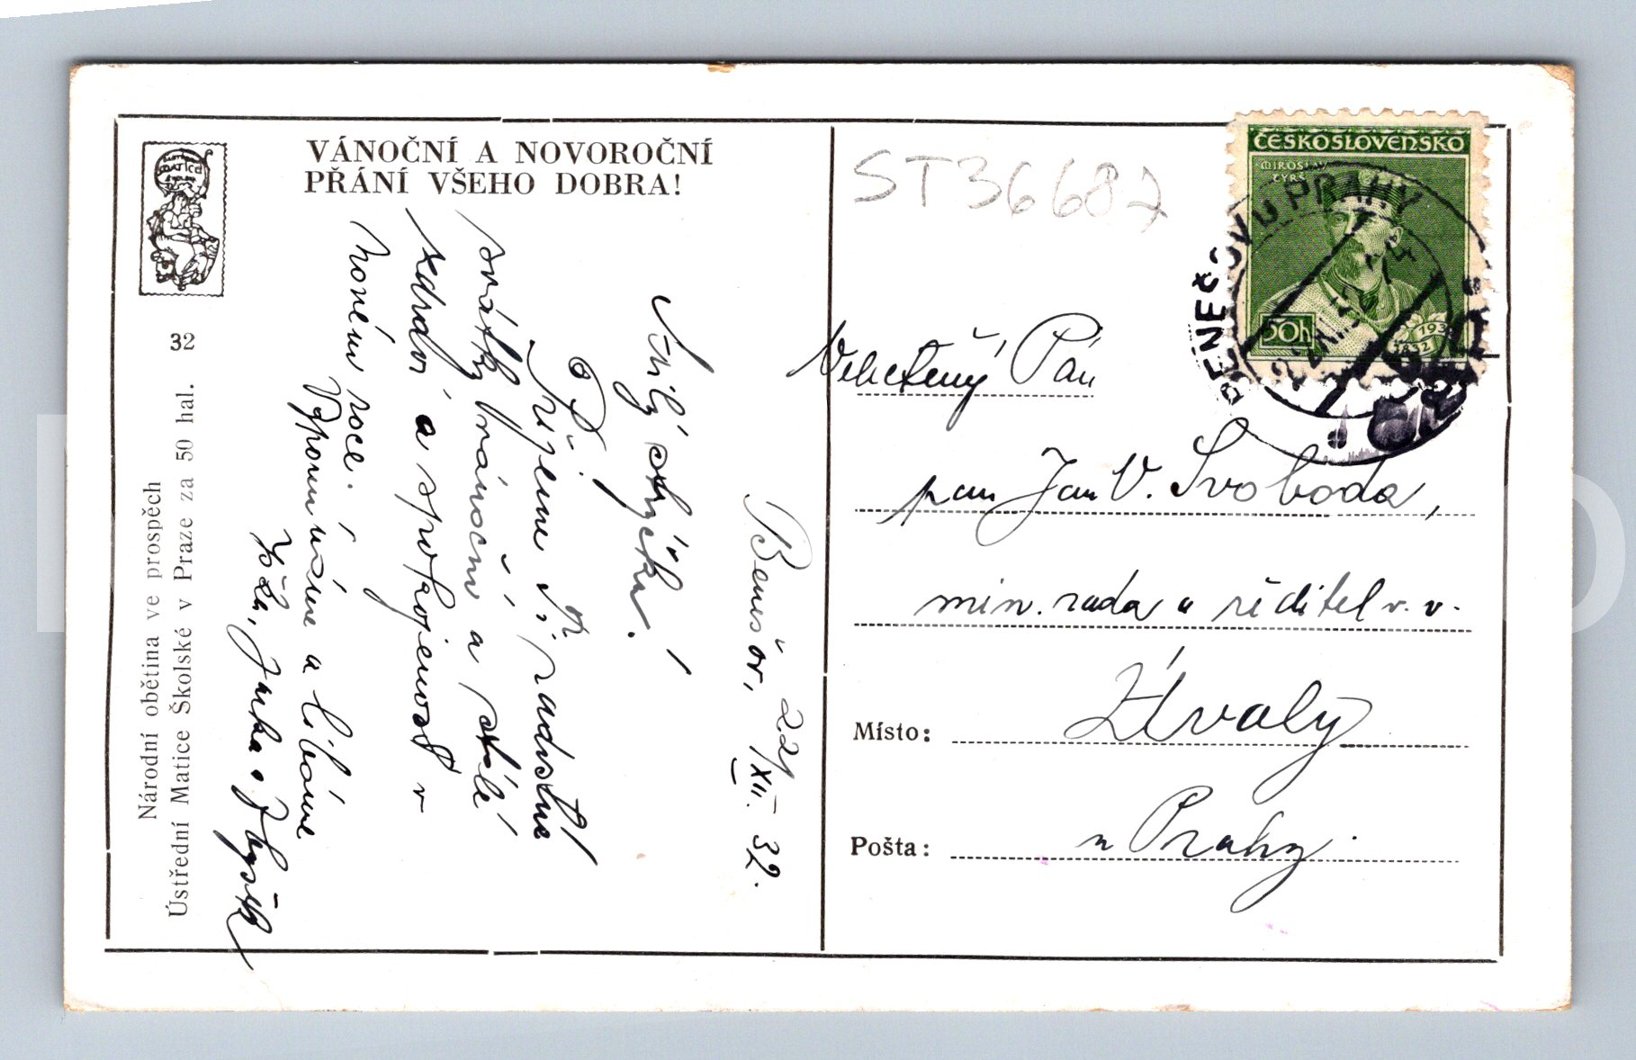 VÁNOČNÍ A NOVOROČNÍ
PŘÁNÍ VŠEHO DOBRA!
32
Národní obětina ve prospěch
Ústřední Matice Školské v Praze za 50 hal.
Benešov, 22/XII. 32.
Milý strýčku!
Přejeme Ti radostné
svátky vánoční a stálé
zdraví a spokojenost v
novém roce.
Vzpomínáme a líbáme
Jarka
ST36687
ČESKOSLOVENSKO
MIROSLAV
TYRŠ
50h
1932
BENEŠOV U PRAHY
Velectěný Pán
pan Jan V. Svoboda,
min. rada a ředitel v. v.
Místo: Úvaly
Pošta: u Prahy.